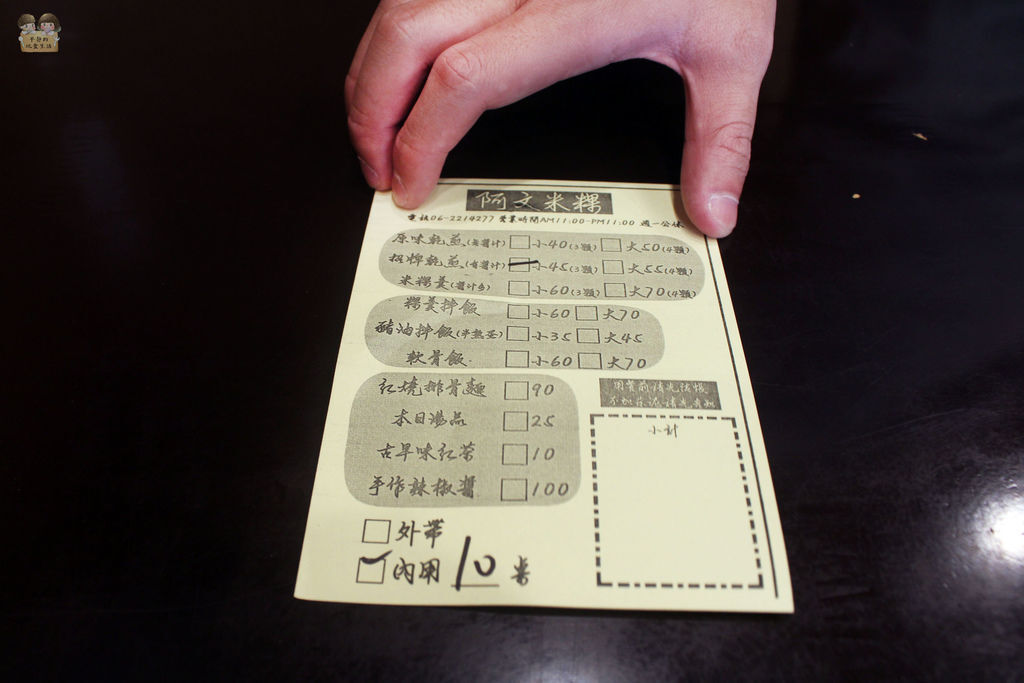 阿文米粿
電話06-2214277 營業時間AM11:00-PM11:00 週一公休
原味乾煎(無醬汁) 小40(3顆) 大50(4顆)
招牌乾煎(有醬汁) 小45(3顆) 大55(4顆)
米粿羹(醬汁多) 小60(3顆) 大70(4顆)
粿羹拌飯 小60 大70
豬油拌飯(半熟蛋) 小35 大45
軟骨飯 小60 大70
紅燒排骨麵 90
本日湯品 25
古早味紅茶 10
手作辣椒醬 100
用餐前請先結帳
小計
外帶
內用 10 桌